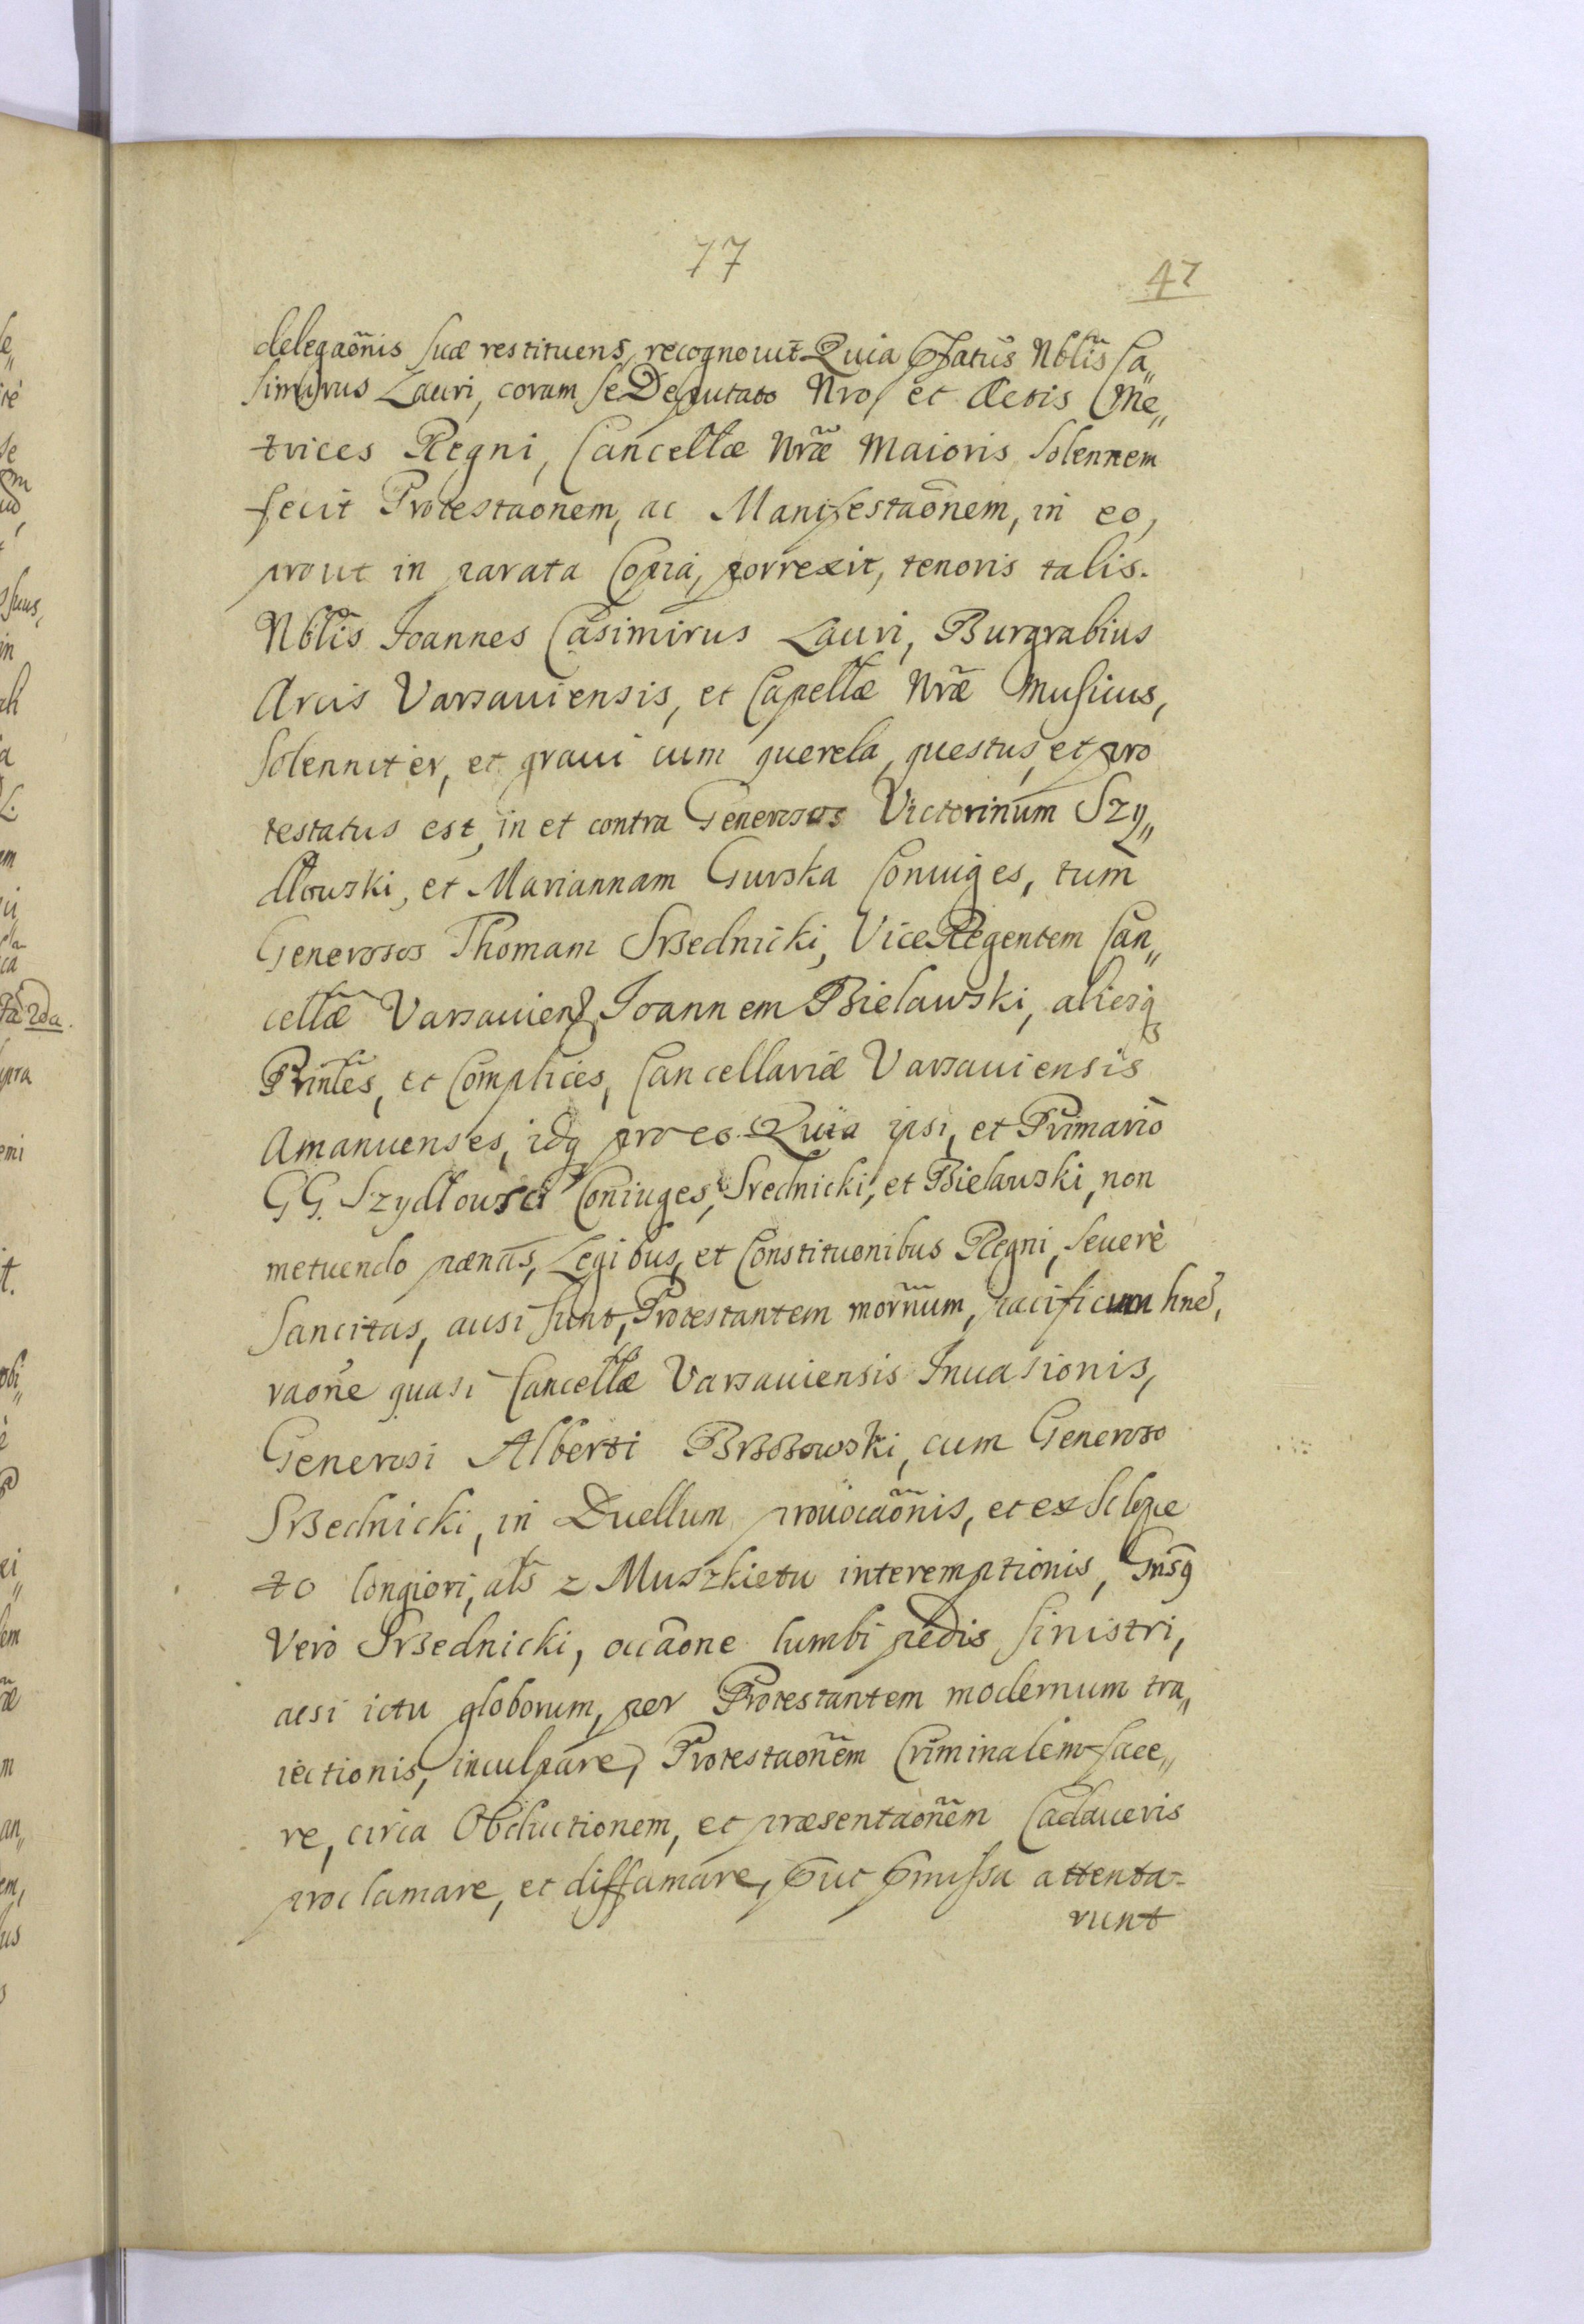 77
47
delegaõnis suæ restituens, recognouit Quia Pfatus Nblis̃ Ca„
simirus Lauri, coram se Deputato Nro, et Actis Me„
trices Regni, Cancellæ Nræ̃ Maioris Solennem
fecit Protestaonem, ac Manifestaõnem, in eo,
prout in parata Copia, porrexit, tenoris talis.
Nblis̃ Joannes Casimirus Lauri, Burgrabius
Arcis Varsauiensis, et Capellæ Nræ̃ Musicus,
Solenniter, et graui cum querela, questus, et pro
testatus est, in et contra Generosos Victorinum Szy„
dlowski, et Mariannam Gurska Coniuges, tum
Generosos Thomam Srzednicki, Vice Regentem Can„
cellæ̃ Varsauien, Joannem Bielawski, aliosq
Prinles̃, et Complices, Cancellariæ Varsauiensis
Amanuenses, idq pro eo. Quia ipsi, et Primario
GG. Szydlowsci Coniuges, Srednicki, et Bielawski, non
metuendo pœnas, Legibus, et Constituonibus Regni, seuerè
Sancitas, ausi sunt, Protestantem mornum̃, pacificum hne͂,
raoñe quasi Cancellæ Varsauiensis Inuasionis,
Generosi Alberti Brzozowski, cum Generoso
Srzednicki, in Duellum prouocaõnis, et ex Sclope
to longiori, als̃ z Muszkietu interemptionis, Gnsq
Vero Srzednicki, occãone lumbi pedis sinistri,
acsi ictu globorum, per Protestantem modernum tra„
iectionis, inculpare, Protestaoñem Criminalem face„
re, circa Obductionem, et præsentaoñem Cadaueris
proclamare, et diffamare, Put Pmissa attenta-
runt